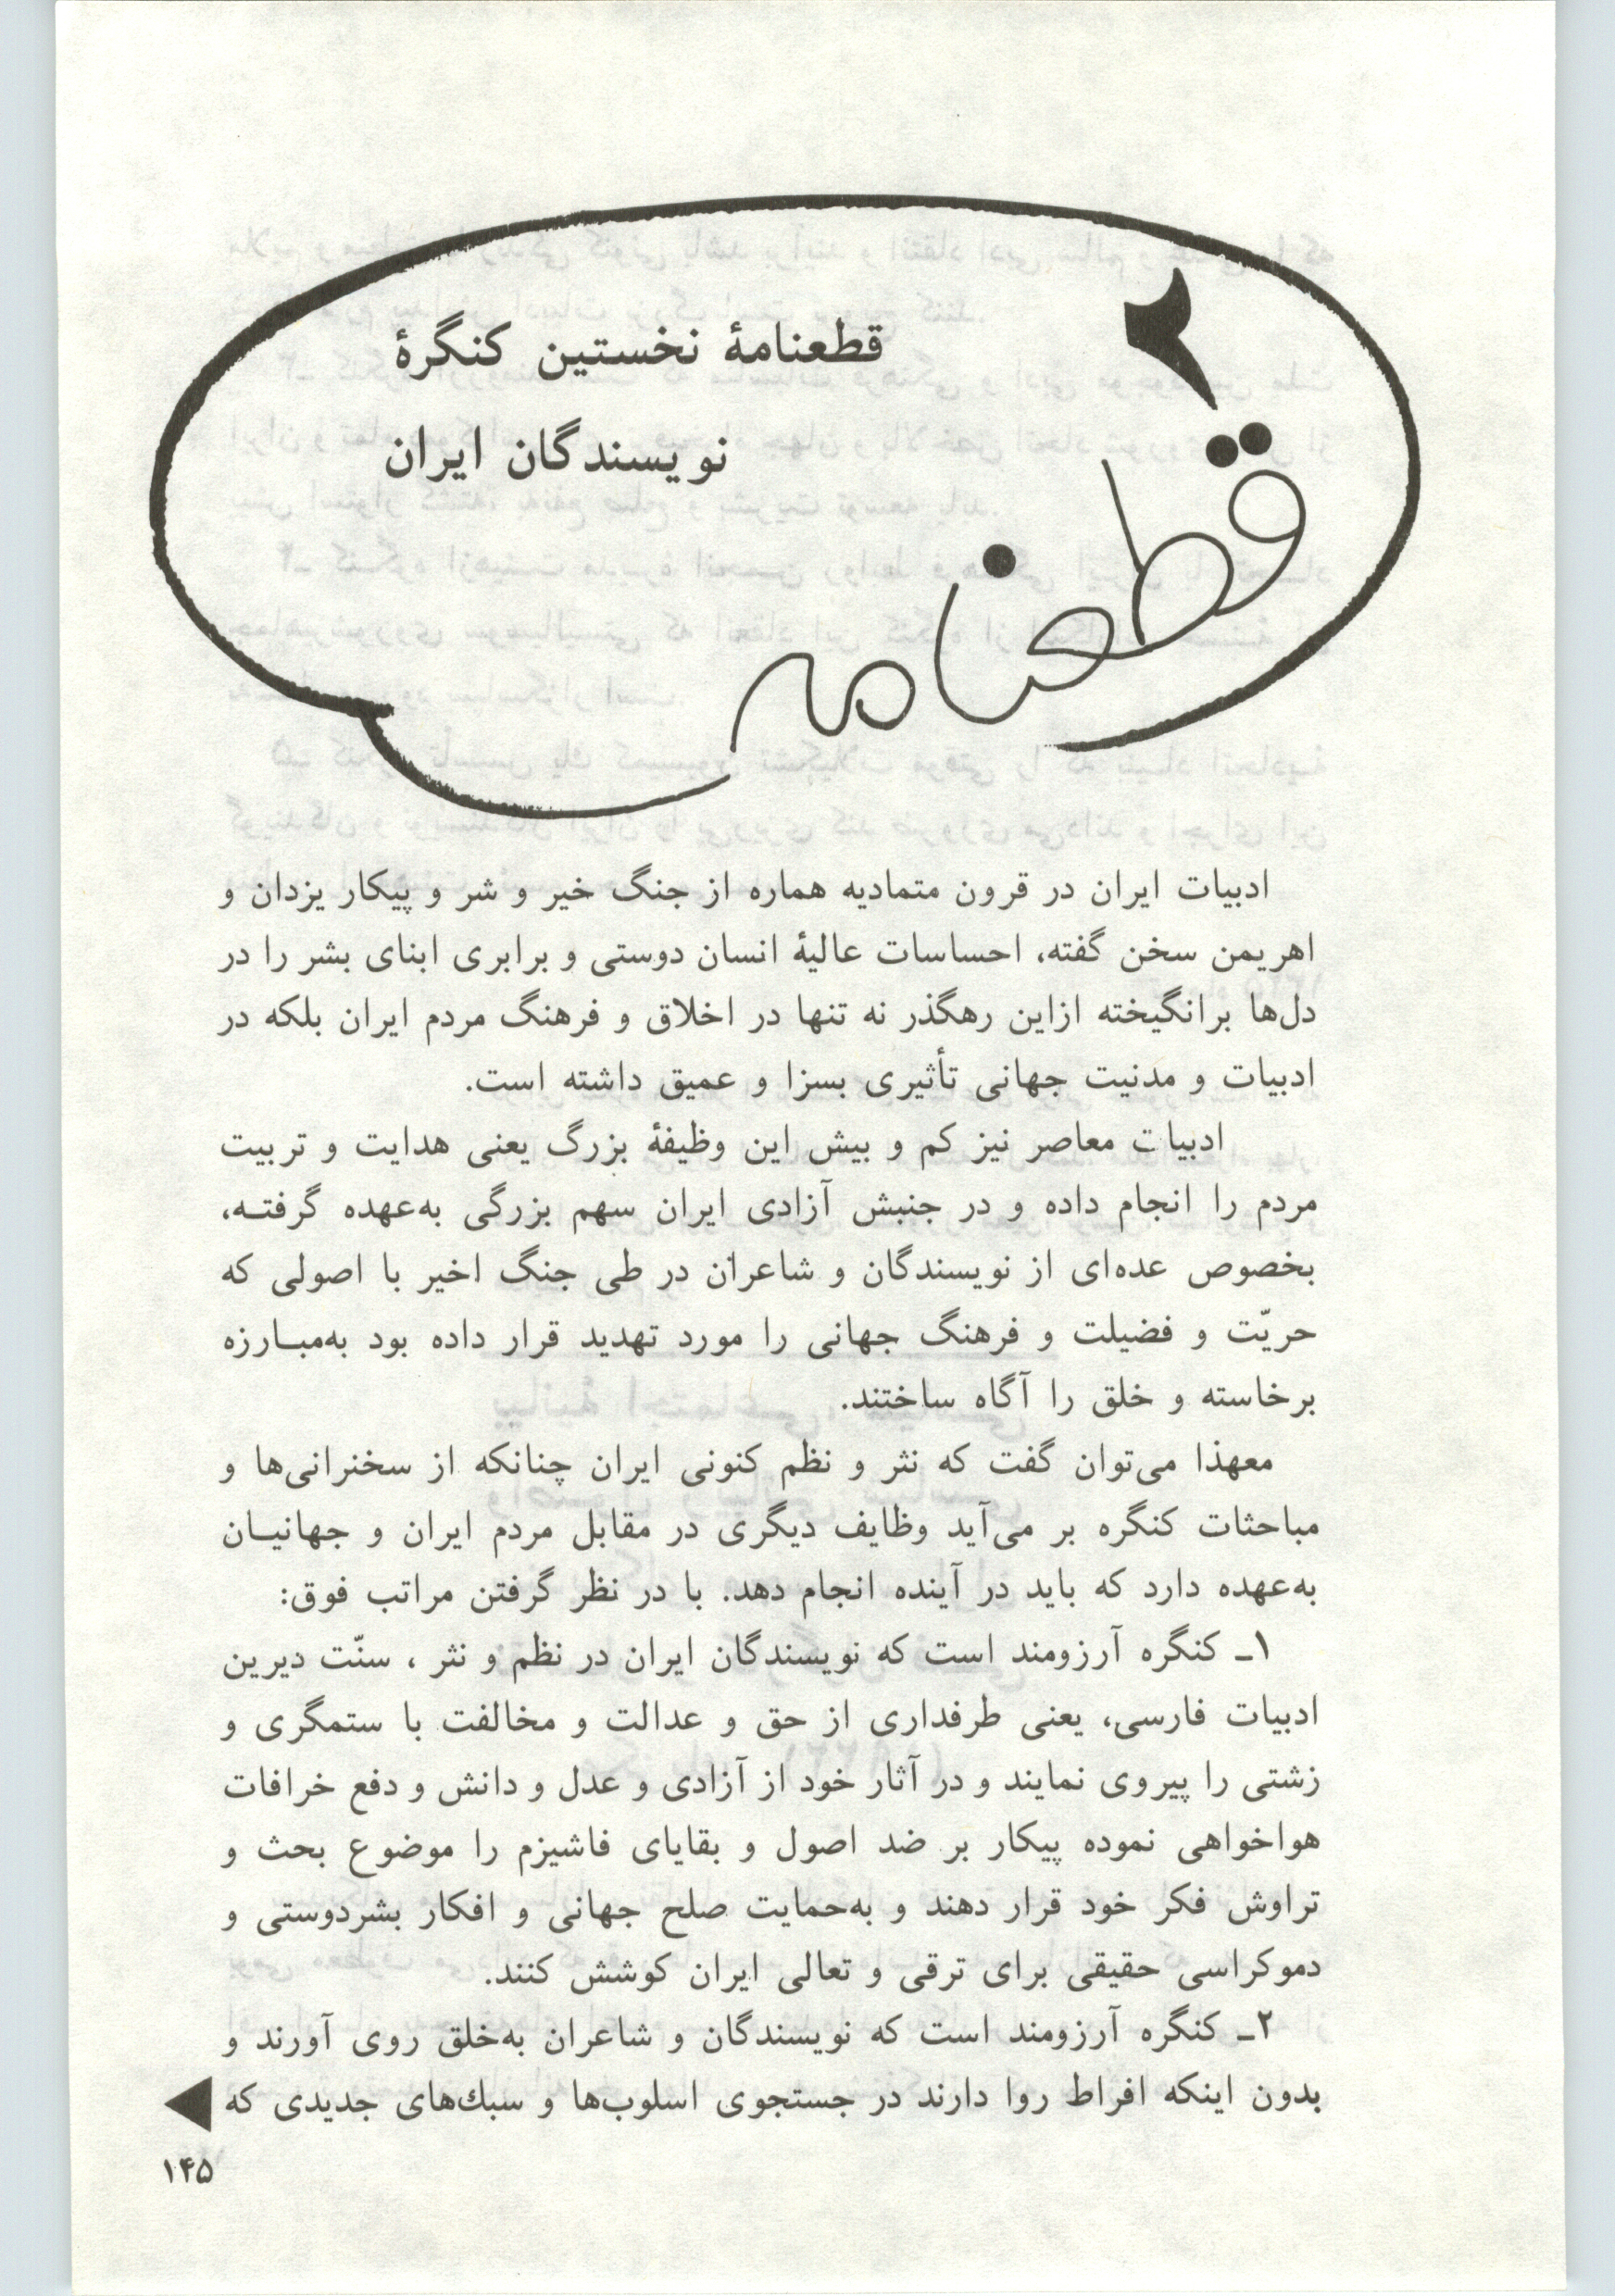 ۲
قطعنامه
قطعنامهٔ نخستین کنگرهٔ
نویسندگان ایران
ادبیات ایران در قرون متمادیه هماره از جنگ خیر و شر و پیکار یزدان و
اهریمن سخن گفته، احساسات عالیهٔ انسان دوستی و برابری ابنای بشر را در
دل‌ها برانگیخته ازاین رهگذر نه تنها در اخلاق و فرهنگ مردم ایران بلکه در
ادبیات و مدنیت جهانی تأثیری بسزا و عمیق داشته است.
ادبیات معاصر نیز کم و بیش این وظیفهٔ بزرگ یعنی هدایت و تربیت
مردم را انجام داده و در جنبش آزادی ایران سهم بزرگی به‌عهده گرفتـه،
بخصوص عده‌ای از نویسندگان و شاعران در طی جنگ اخیر با اصولی که
حریّت و فضیلت و فرهنگ جهانی را مورد تهدید قرار داده بود به‌مبـارزه
برخاسته و خلق را آگاه ساختند.
معهذا می‌توان گفت که نثر و نظم کنونی ایران چنانکه از سخنرانی‌ها و
مباحثات کنگره بر می‌آید وظایف دیگری در مقابل مردم ایران و جهانیـان
به‌عهده دارد که باید در آینده انجام دهد. با در نظر گرفتن مراتب فوق:
۱ـ کنگره آرزومند است که نویسندگان ایران در نظم و نثر ، سنّت دیرین
ادبیات فارسی، یعنی طرفداری از حق و عدالت و مخالفت با ستمگری و
زشتی را پیروی نمایند و در آثار خود از آزادی و عدل و دانش و دفع خرافات
هواخواهی نموده پیکار بر ضد اصول و بقایای فاشیزم را موضوع بحث و
تراوش فکر خود قرار دهند و به‌حمایت صلح جهانی و افکار بشردوستی و
دموکراسی حقیقی برای ترقی و تعالی ایران کوشش کنند.
۲ـ کنگره آرزومند است که نویسندگان و شاعران به‌خلق روی آورند و
بدون اینکه افراط روا دارند در جستجوی اسلوب‌ها و سبك‌های جدیدی که
۱۴۵